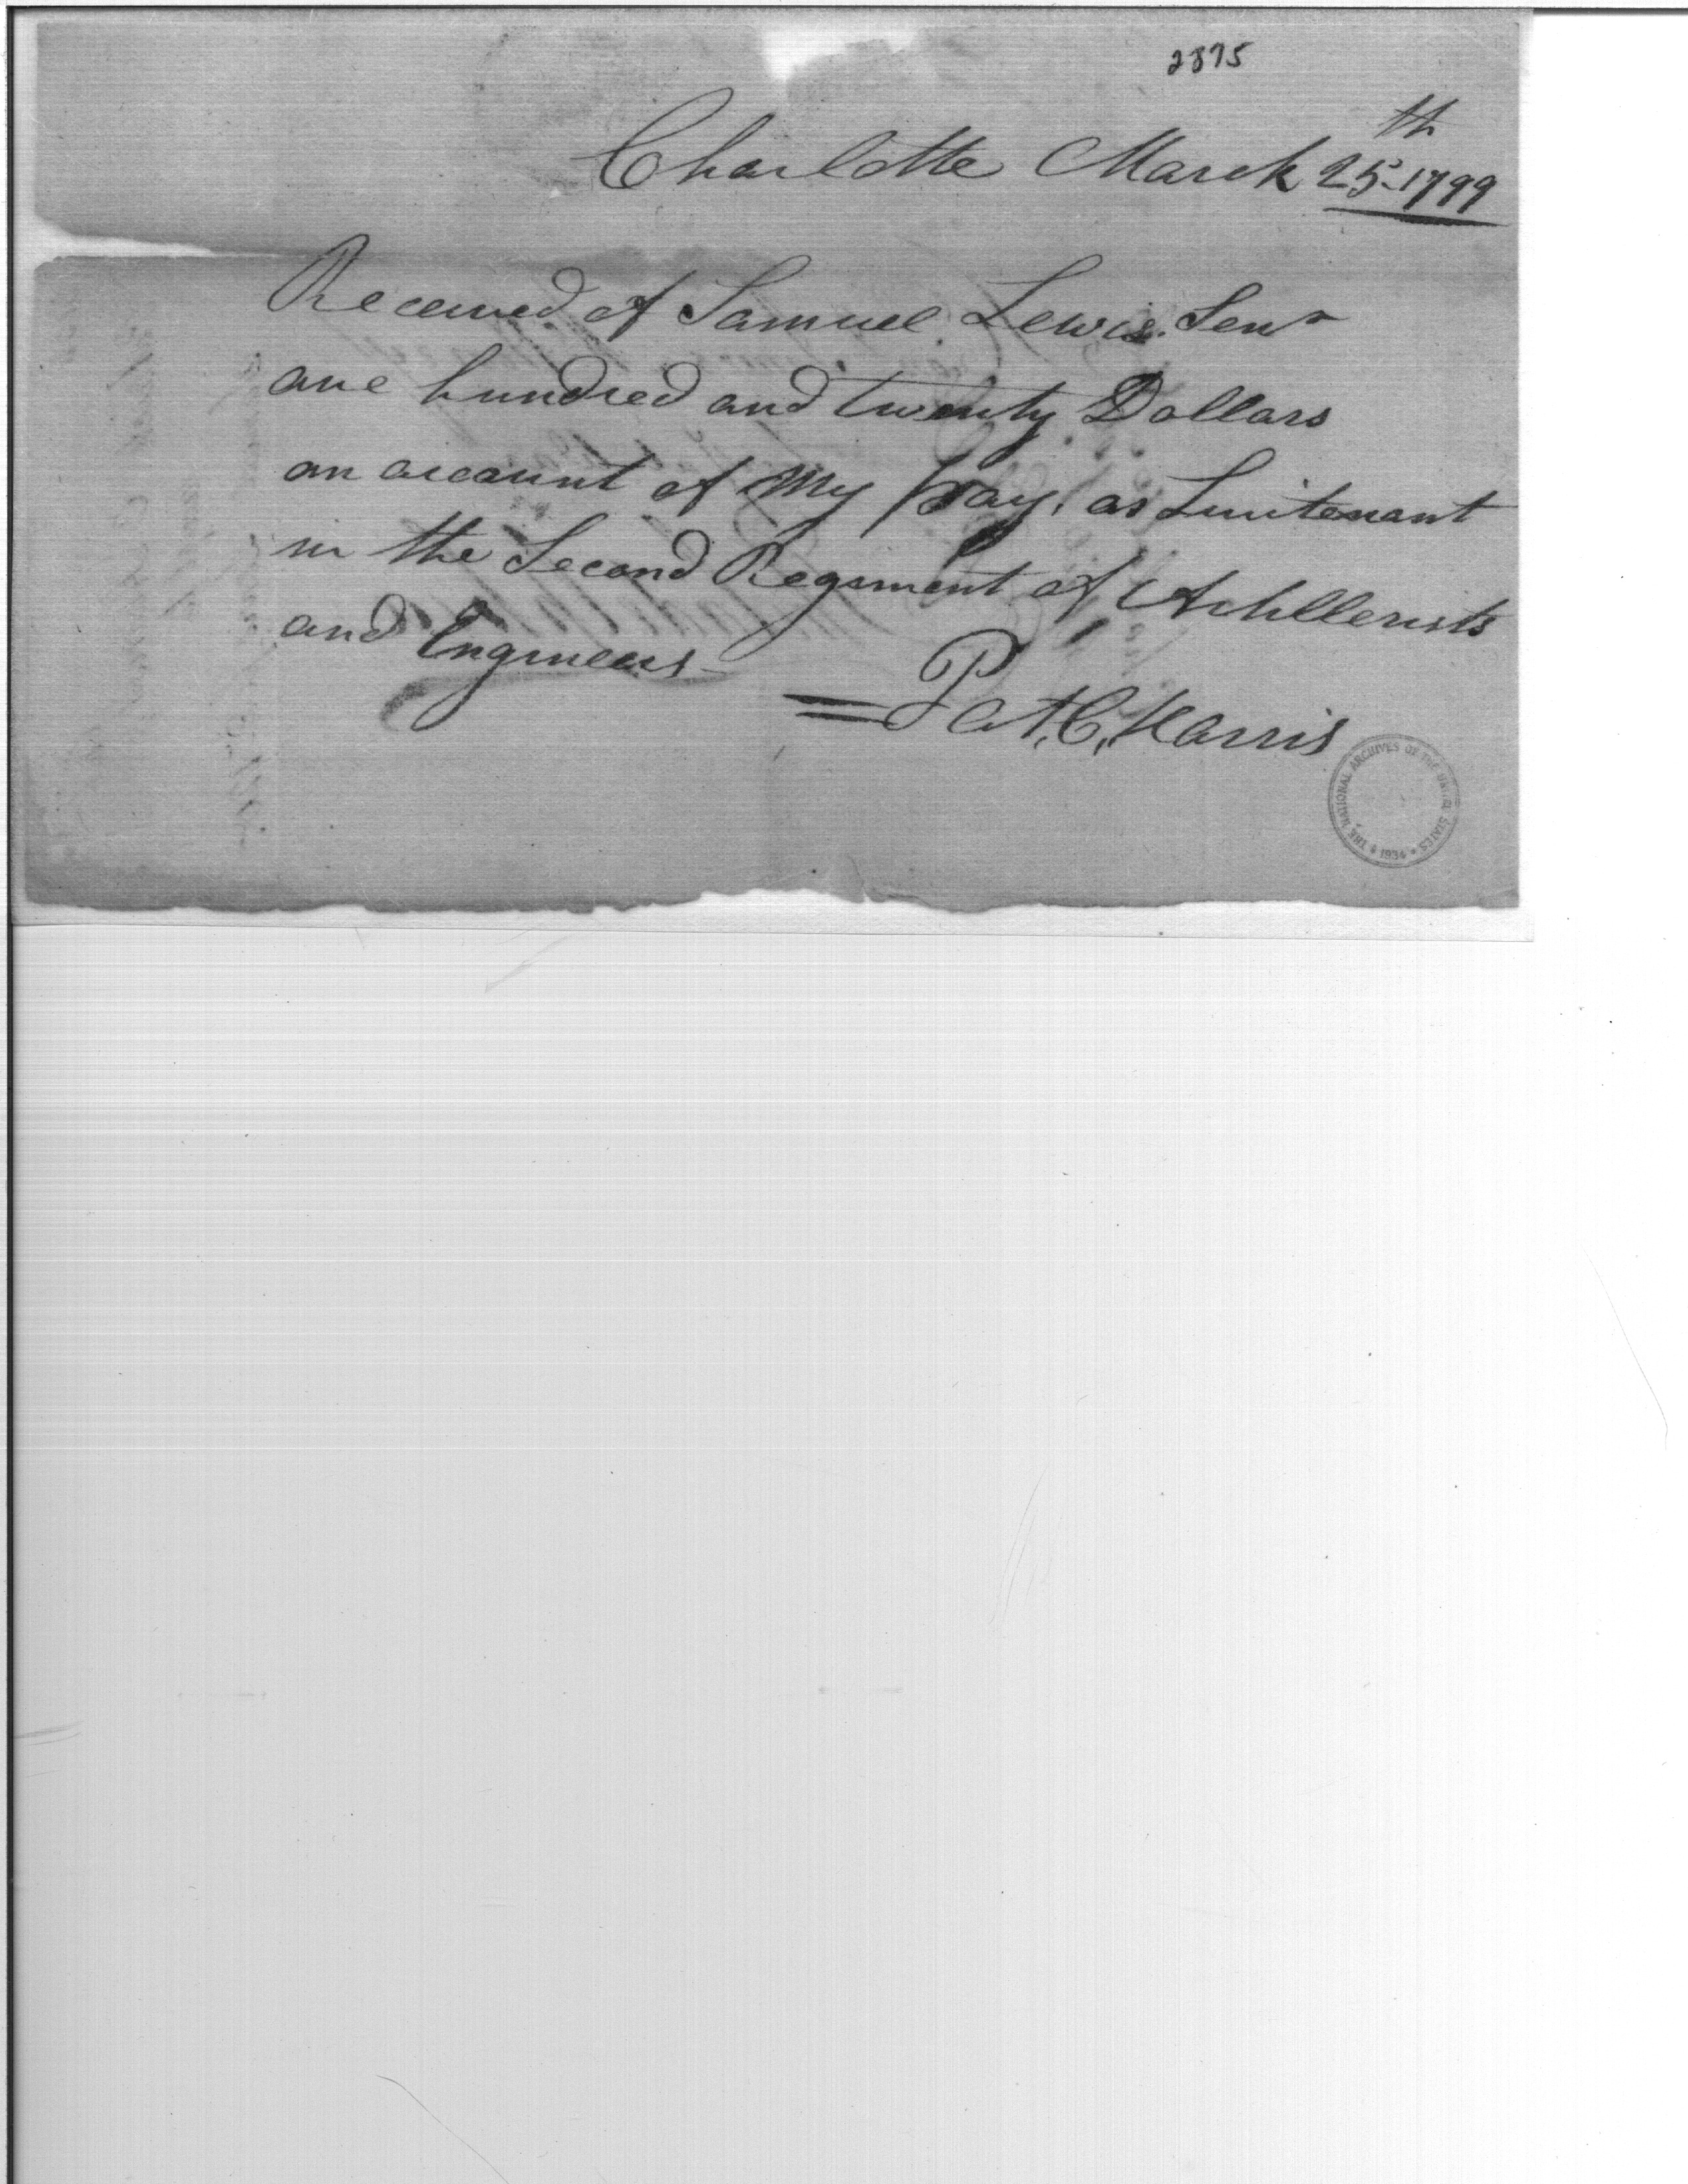 2875
Charlotte March 25th 1799
Received of Samuel Lewis Senr
one hundred and twenty Dollars
on account of My pay, as Luitenant
in the Second Regiment of Artillerists
and Engineers
Pat. C. Harris
THE NATIONAL ARCHIVES OF THE UNITED STATES
1934